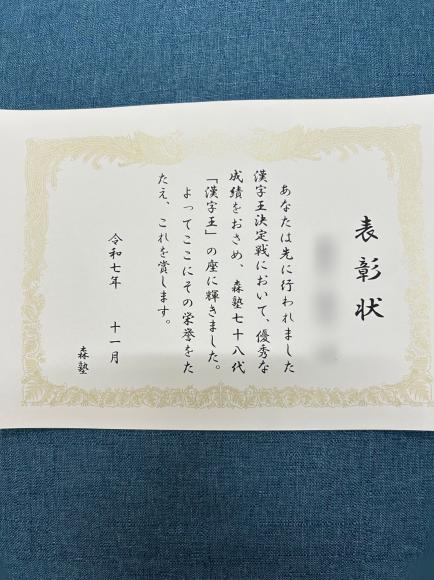 表彰状
あなたは先に行われました
漢字王決定戦において、優秀な
成績をおさめ、森塾七十八代
「漢字王」の座に輝きました。
よってここにその栄誉をた
たえ、これを賞します。
令和七年 十一月
森塾